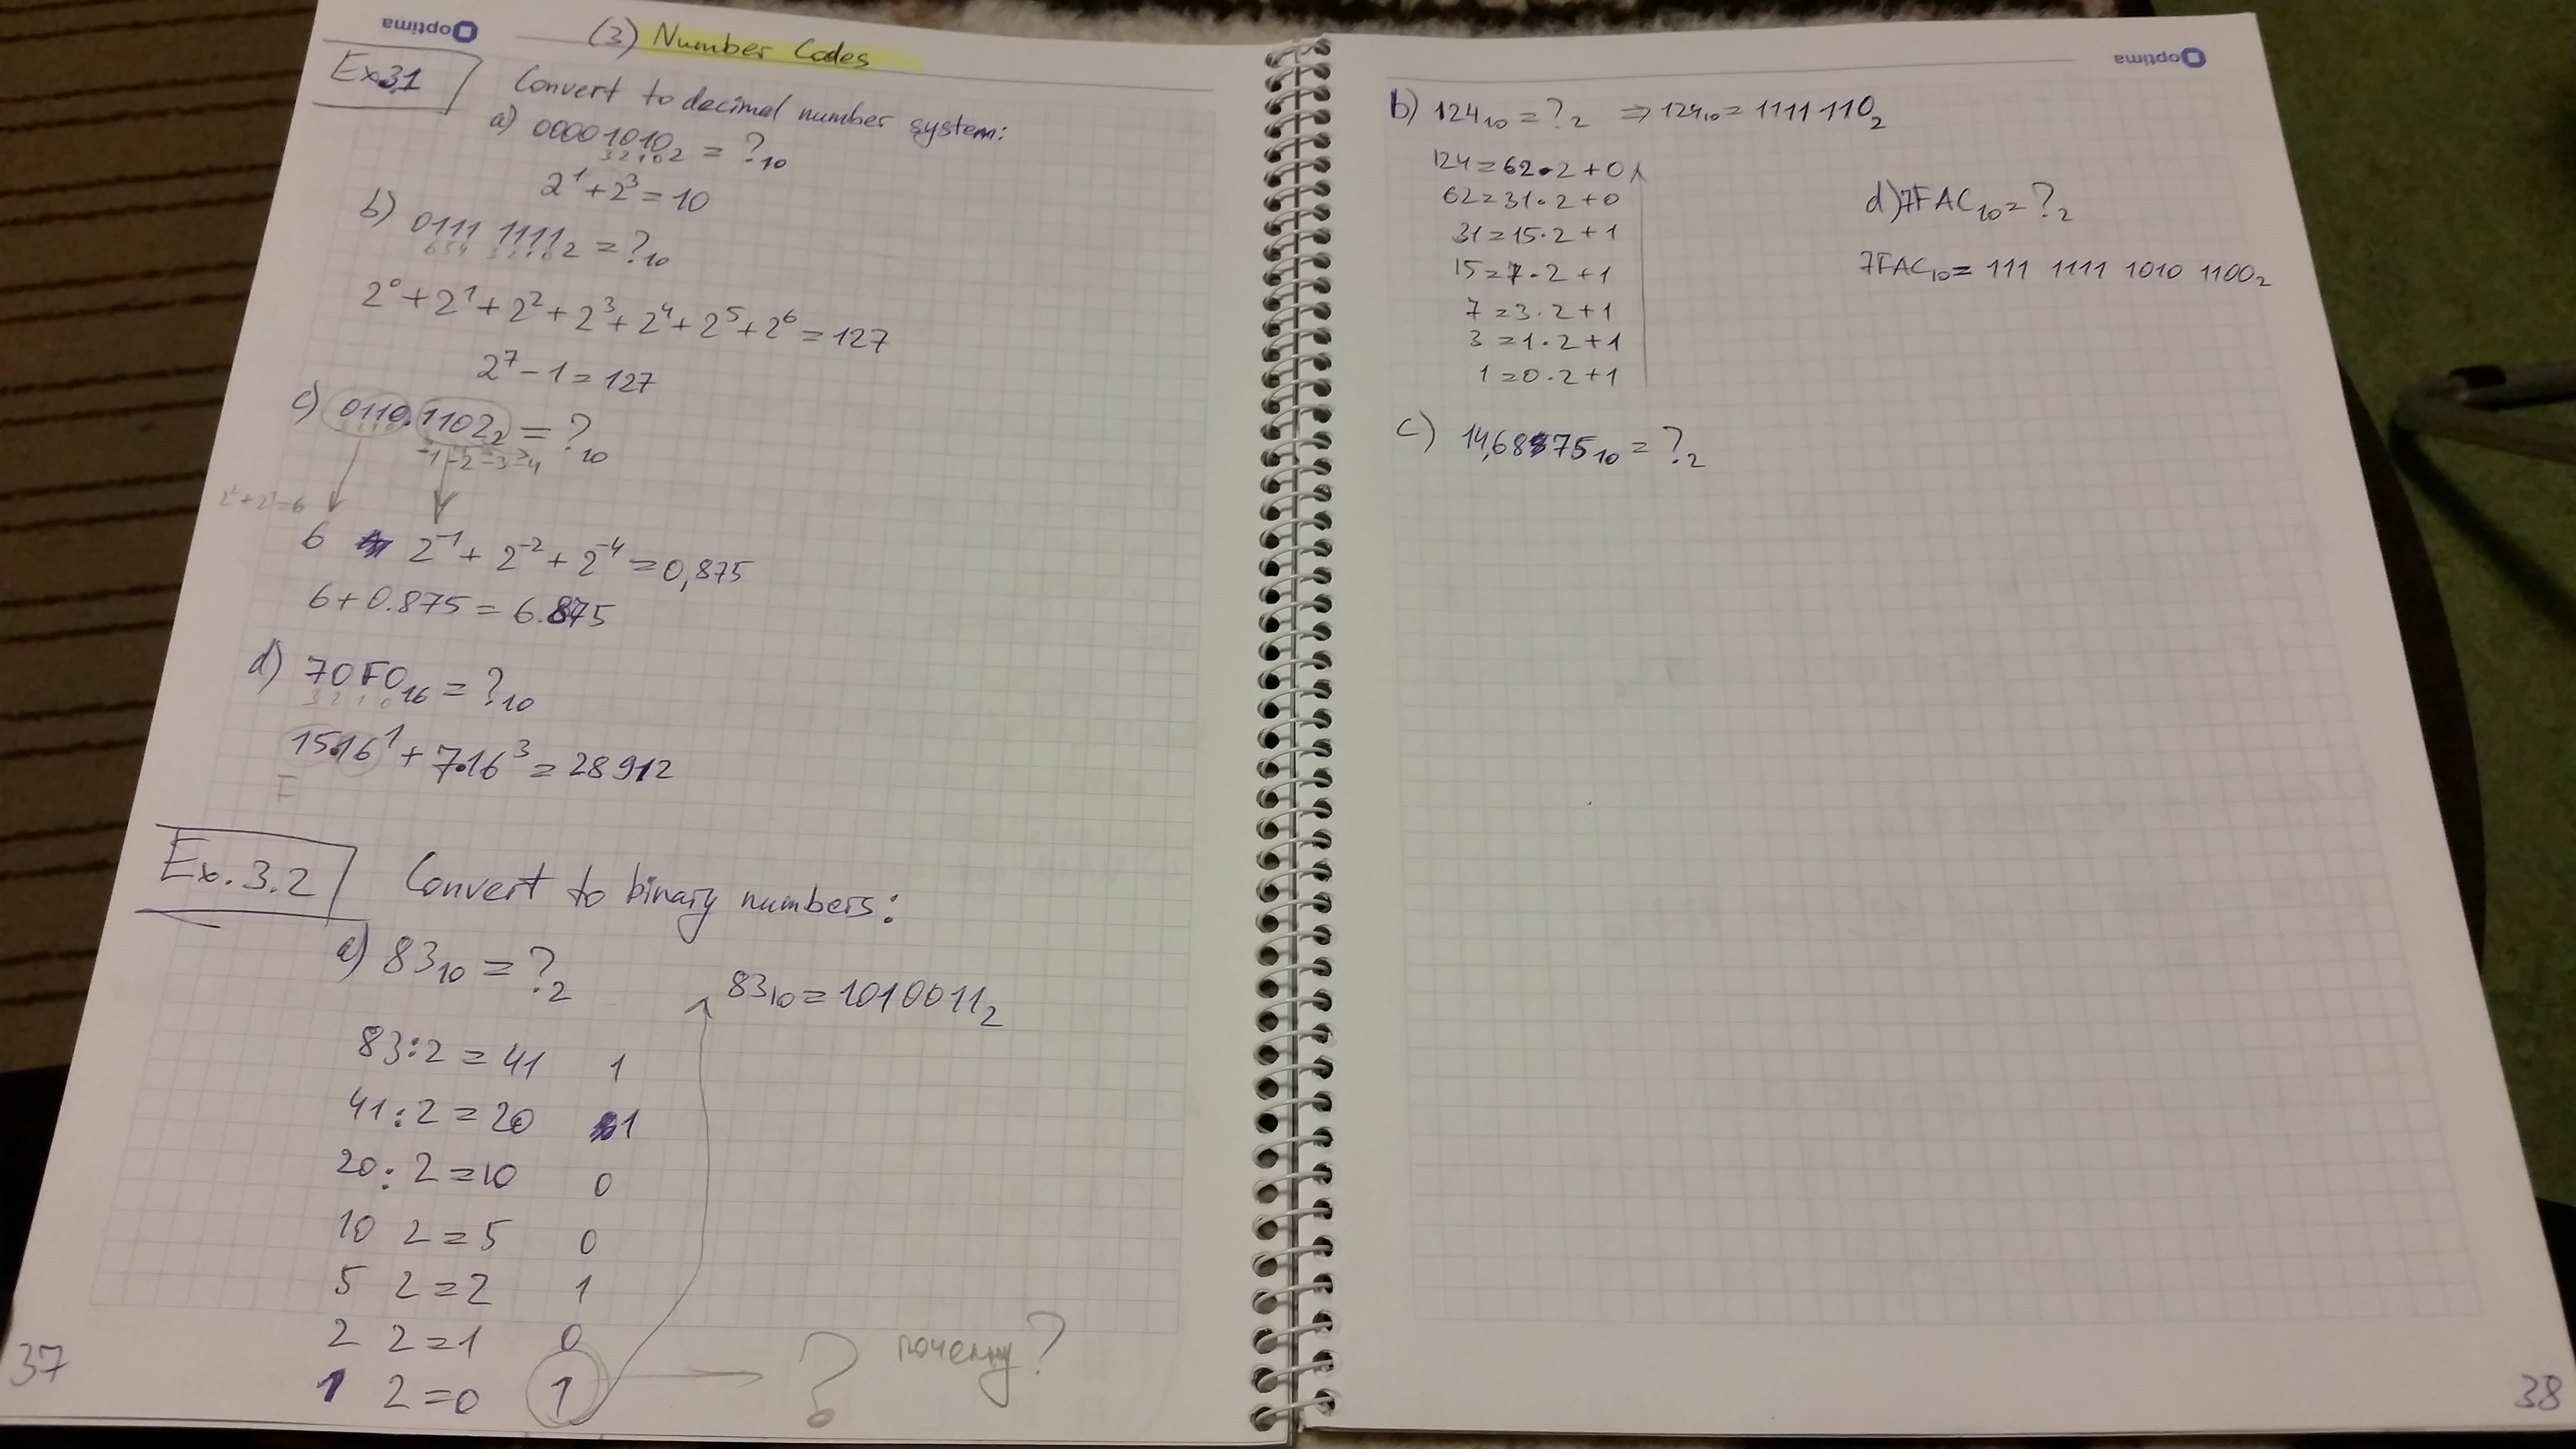 optima
(3) Number Codes
Ex 3.1
Convert to decimal number system:
a) 00001010₂ = ?₁₀
3 2 1 0
2¹ + 2³ = 10
b) 0111 1111₂ = ?₁₀
6 5 4 3 2 1 0
2⁰ + 2¹ + 2² + 2³ + 2⁴ + 2⁵ + 2⁶ = 127
2⁷ - 1 = 127
c) 0110.1102₂ = ?₁₀
-1 -2 -3 -4
2² + 2¹ = 6
6 2⁻¹ + 2⁻² + 2⁻⁴ = 0,875
6 + 0.875 = 6.875
d) 70F0₁₆ = ?₁₀
3 2 1 0
15·16¹ + 7·16³ = 28912
F
Ex. 3.2
Convert to binary numbers:
a) 83₁₀ = ?₂
83₁₀ = 1010011₂
83:2 = 41 1
41:2 = 20 1
20:2 = 10 0
10 2 = 5 0
5 2 = 2 1
2 2 = 1 0
1 2 = 0 1
? почему?
37
optima
b) 124₁₀ = ?₂ ⇒ 124₁₀ = 1111 110₂
124 = 62·2 + 0
62 = 31·2 + 0
31 = 15·2 + 1
15 = 7·2 + 1
7 = 3·2 + 1
3 = 1·2 + 1
1 = 0·2 + 1
d) 7FAC₁₀ = ?₂
7FAC₁₀ = 111 1111 1010 1100₂
c) 14,6875₁₀ = ?₂
38